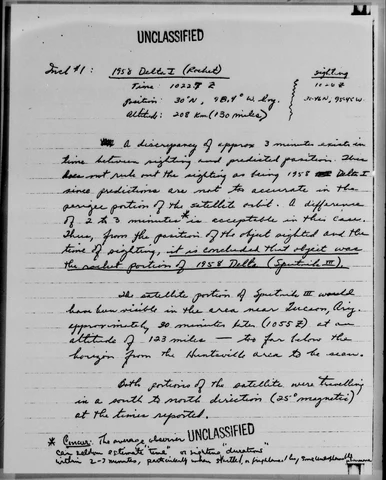 UNCLASSIFIED
Incl #1: 1958 Delta I (Rocket)
Sighting
Time: Z
Position: 30°N, W. Long.
Altitude: 208 Km (130 miles)
A discrepancy of approx 3 minutes exists in
time between sighting and predicted position. This
does not rule out the sighting as being 1958 Delta I
since predictions are not to accurate in the
perigee portion of the satellite orbit. A difference
of 2 to 3 minutes* is acceptable in this case.
Thus, from the position of the object sighted and the
time of sighting, it is concluded that object was
the rocket portion of 1958 Delta (Sputnik III).
The satellite portion of Sputnik III would
have been visible in the area near Tucson, Ariz.
approximately 30 minutes later (1055 Z) at an
altitude of 123 miles — too far below the
horizon from the Huntsville area to be seen.
Both portions of the satellite were travelling
in a south to north direction (25° magnetic)
at the times reported.
UNCLASSIFIED
* Concur: The average observer
can seldom estimate "time" or sighting "durations"
within 2-3 minutes, particularly when startled, or frightened by